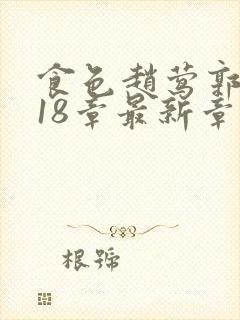 食色趙莺郭
18章最新章
根號